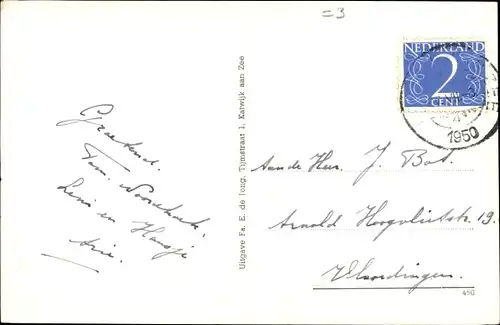 =3
NEDERLAND
2
CENT
1950
Groetend.
Fam. Noordhoek.
Leni en Hansje
Arie.
Uitgave Fa. E. de Jong, Tijmstraat 1, Katwijk aan Zee
Aan de Heer. J. Bot.
Arnold Hoogvlietstr. 19.
Vlaardingen.
450